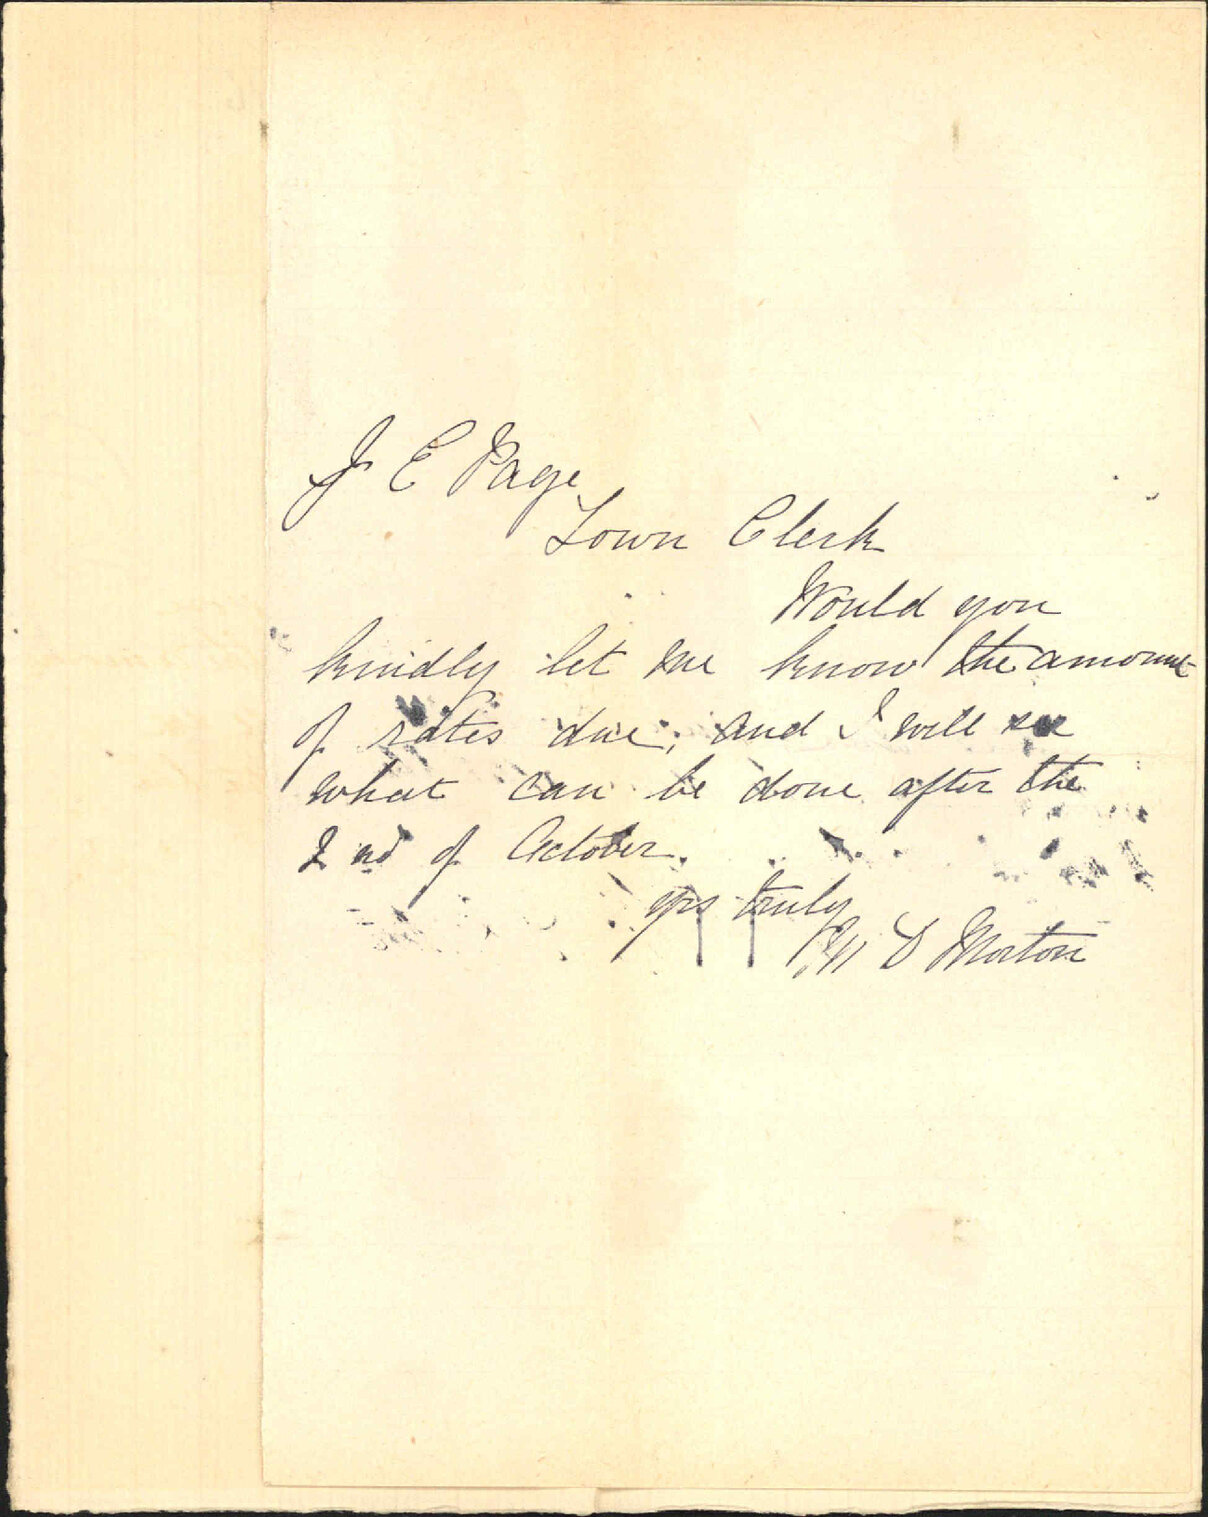 J E Page
Town Clerk
Would you
kindly let me know the amount
of rates due; and I will see
what can be done after the
2nd of October.
yrs truly
D Morton